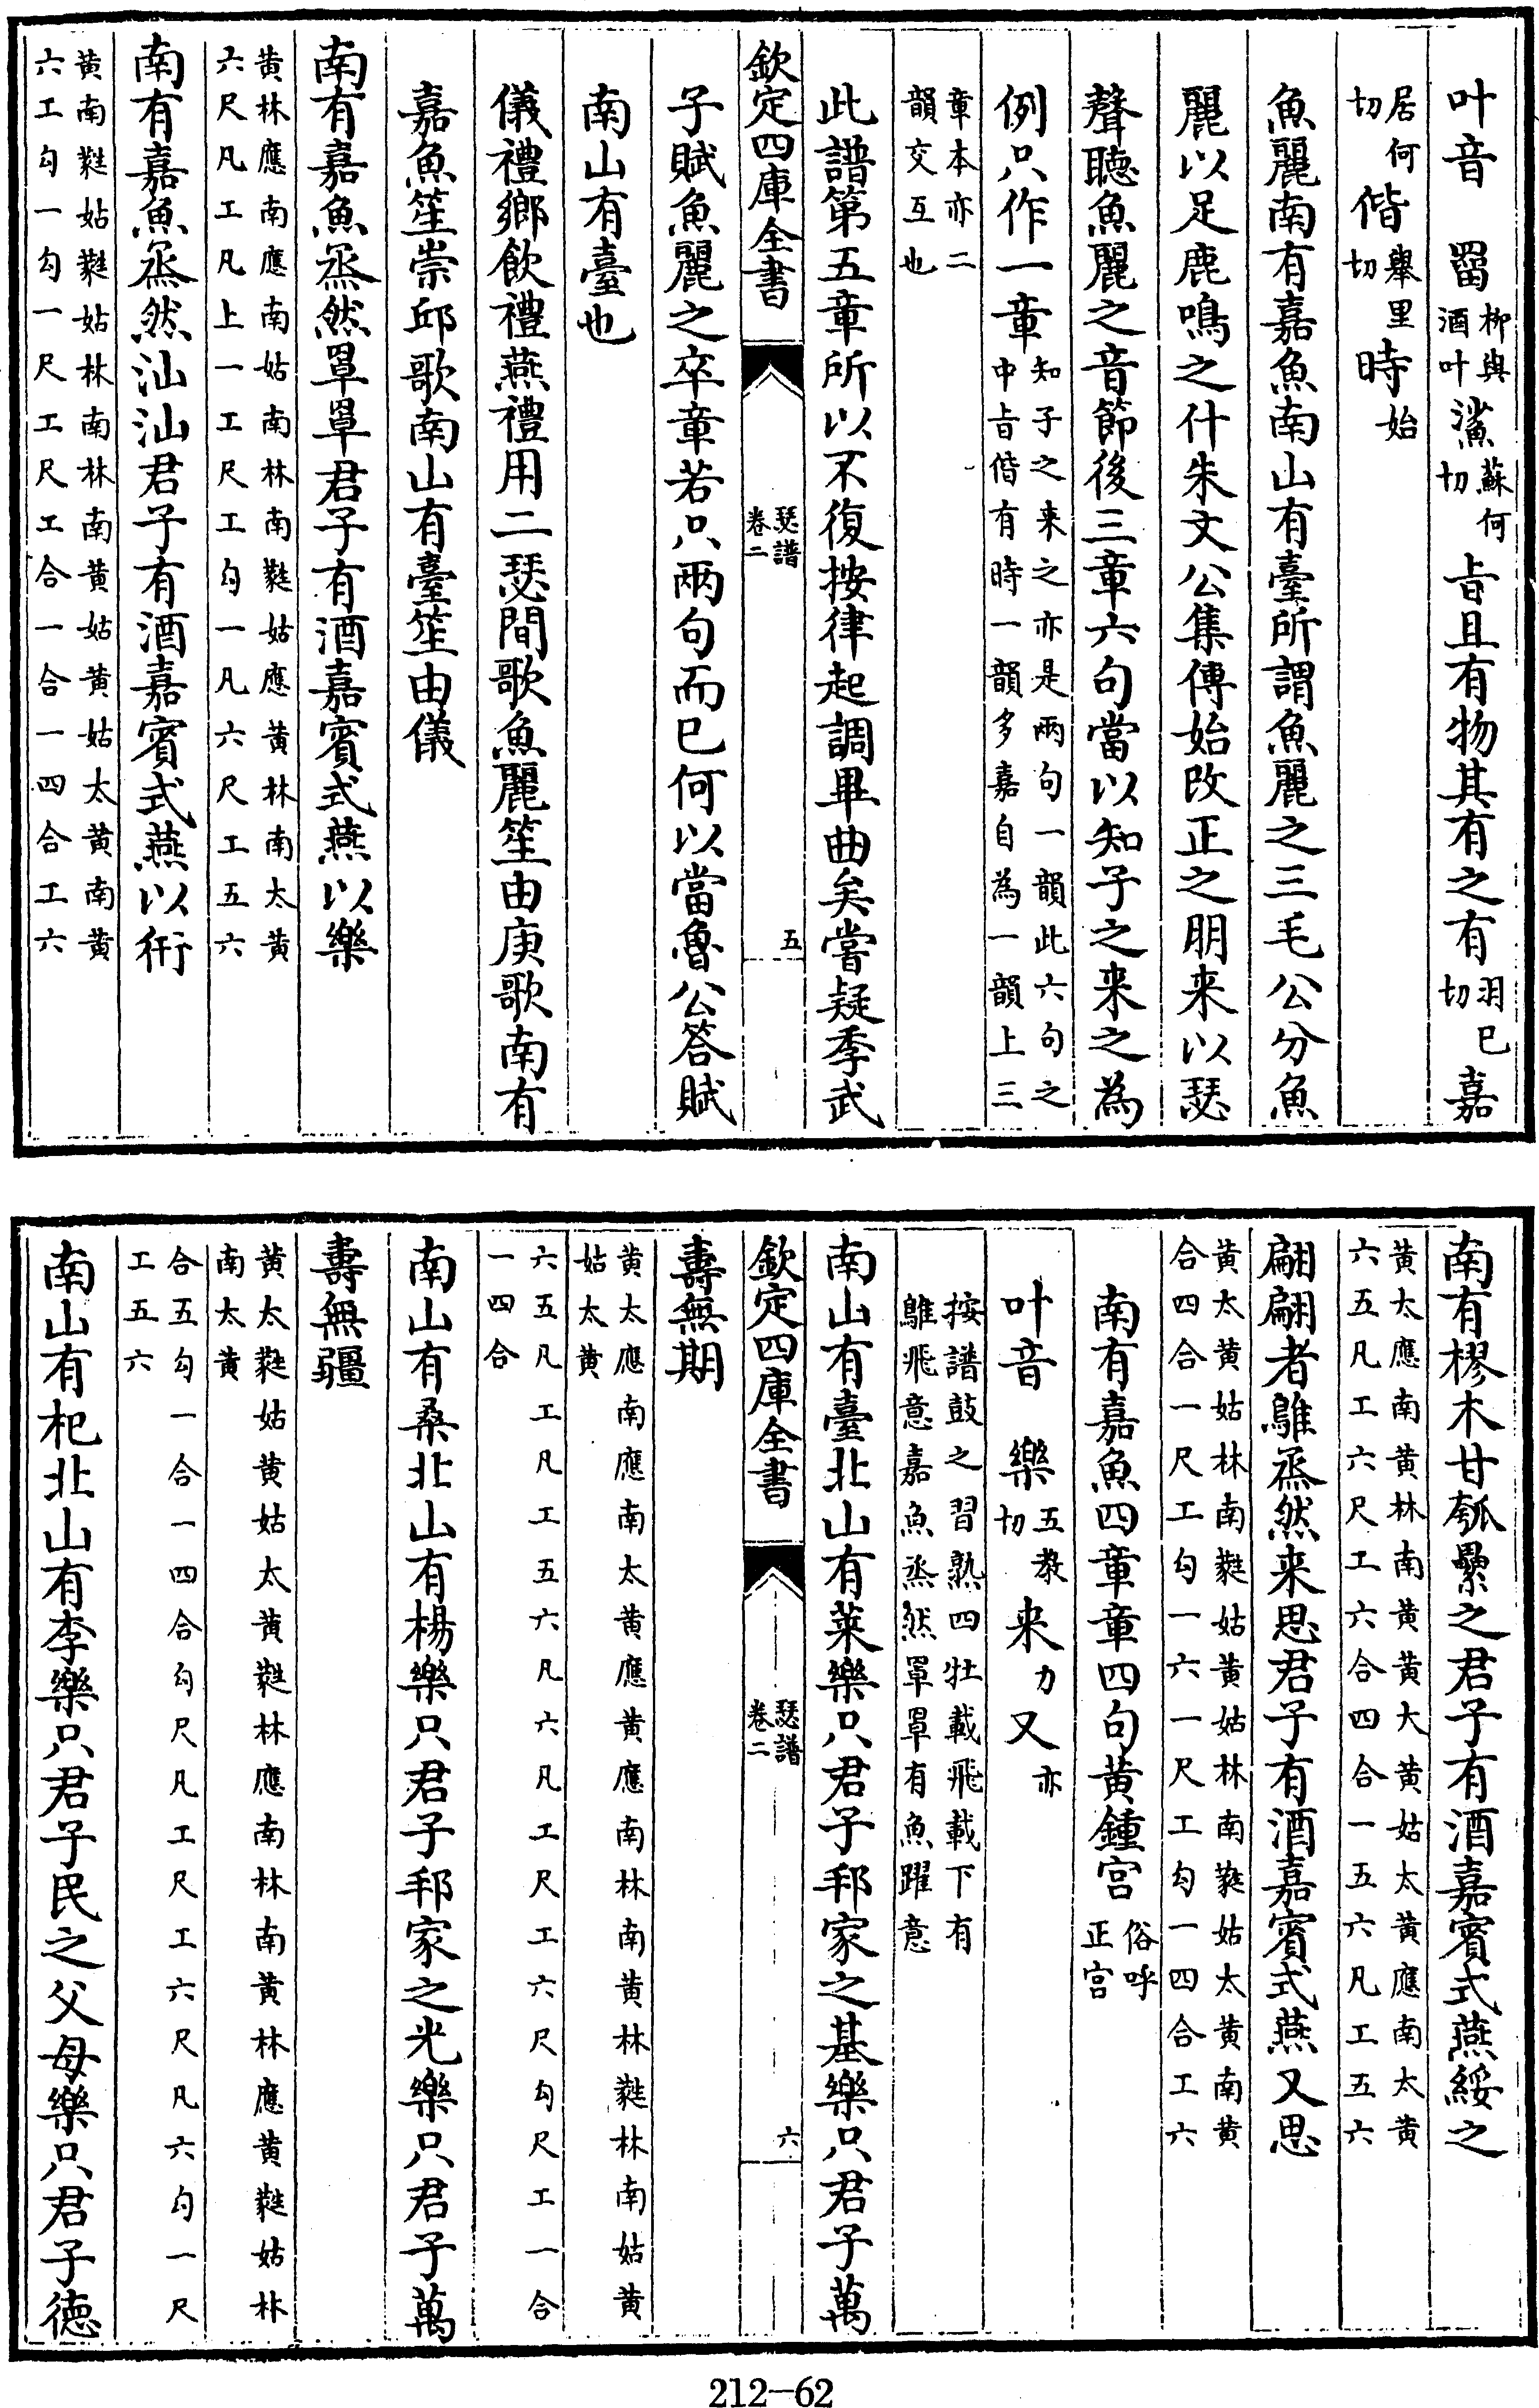 叶音　罶柳與酒叶鯊蘇何切㫖且有物其有之有羽已切嘉
居何切偕舉里切時始
魚麗南有嘉魚南山有臺所謂魚麗之三毛公分魚
麗以足鹿鳴之什朱文公集傳始改正之朋来以瑟
聲聽魚麗之音節後三章六句當以知子之来之為
例只作一章知子之来之亦是兩句一韻此六句之中㫖偕有時一韻多嘉自為一韻上三
章本亦二韻交互也
此譜第五章所以不復按律起調畢曲矣嘗疑季武
欽定四庫全書　瑟譜卷二　五
子賦魚麗之卒章若只兩句而已何以當魯公答賦
南山有臺也
儀禮鄉飲禮燕禮用二瑟間歌魚麗笙由庚歌南有
嘉魚笙崇邱歌南山有臺笙由儀
南有嘉魚烝然罩罩君子有酒嘉賓式燕以樂
黄林應南應南姑南林南蕤姑應黄林南太黄
六尺凡工凡上一工尺工勾一凡六尺工五六
南有嘉魚烝然汕汕君子有酒嘉賓式燕以衎
黄南蕤姑蕤姑林南林南黄姑黄姑太黄南黄
六工勾一勾一尺工尺工合一合一四合工六
南有樛木甘瓠纍之君子有酒嘉賓式燕綏之
黄太應南黄林南黄黄大黄姑太黄應南太黄
六五凡工六尺工六合四合一五六凡工五六
翩翩者鵻烝然来思君子有酒嘉賓式燕又思
黄太黄姑林南蕤姑黄姑林南蕤姑太黄南黄
合四合一尺工勾一六一尺工勾一四合工六
南有嘉魚四章章四句黄鍾宫俗呼正宫
叶音　樂五教切来力又亦
按譜鼓之習熟四牡載飛載下有
鵻飛意嘉魚烝然罩罩有魚躍意
南山有臺北山有萊樂只君子邦家之基樂只君子萬
欽定四庫全書　瑟譜卷二　六
壽無期
黄太應南應南太黄應黄應南林南黄林蕤林南姑黄
姑太黄
六五凡工凡工五六凡六凡工尺工六尺勾尺工一合
一四合
南山有桑北山有楊樂只君子邦家之光樂只君子萬
壽無疆
黄太蕤姑黄姑太黄蕤林應南林南黄林應黄蕤姑林
南太黄
合五勾一合一四合勾尺凡工尺工六尺凡六勾一尺
工五六
南山有杞北山有李樂只君子民之父母樂只君子徳
212-62